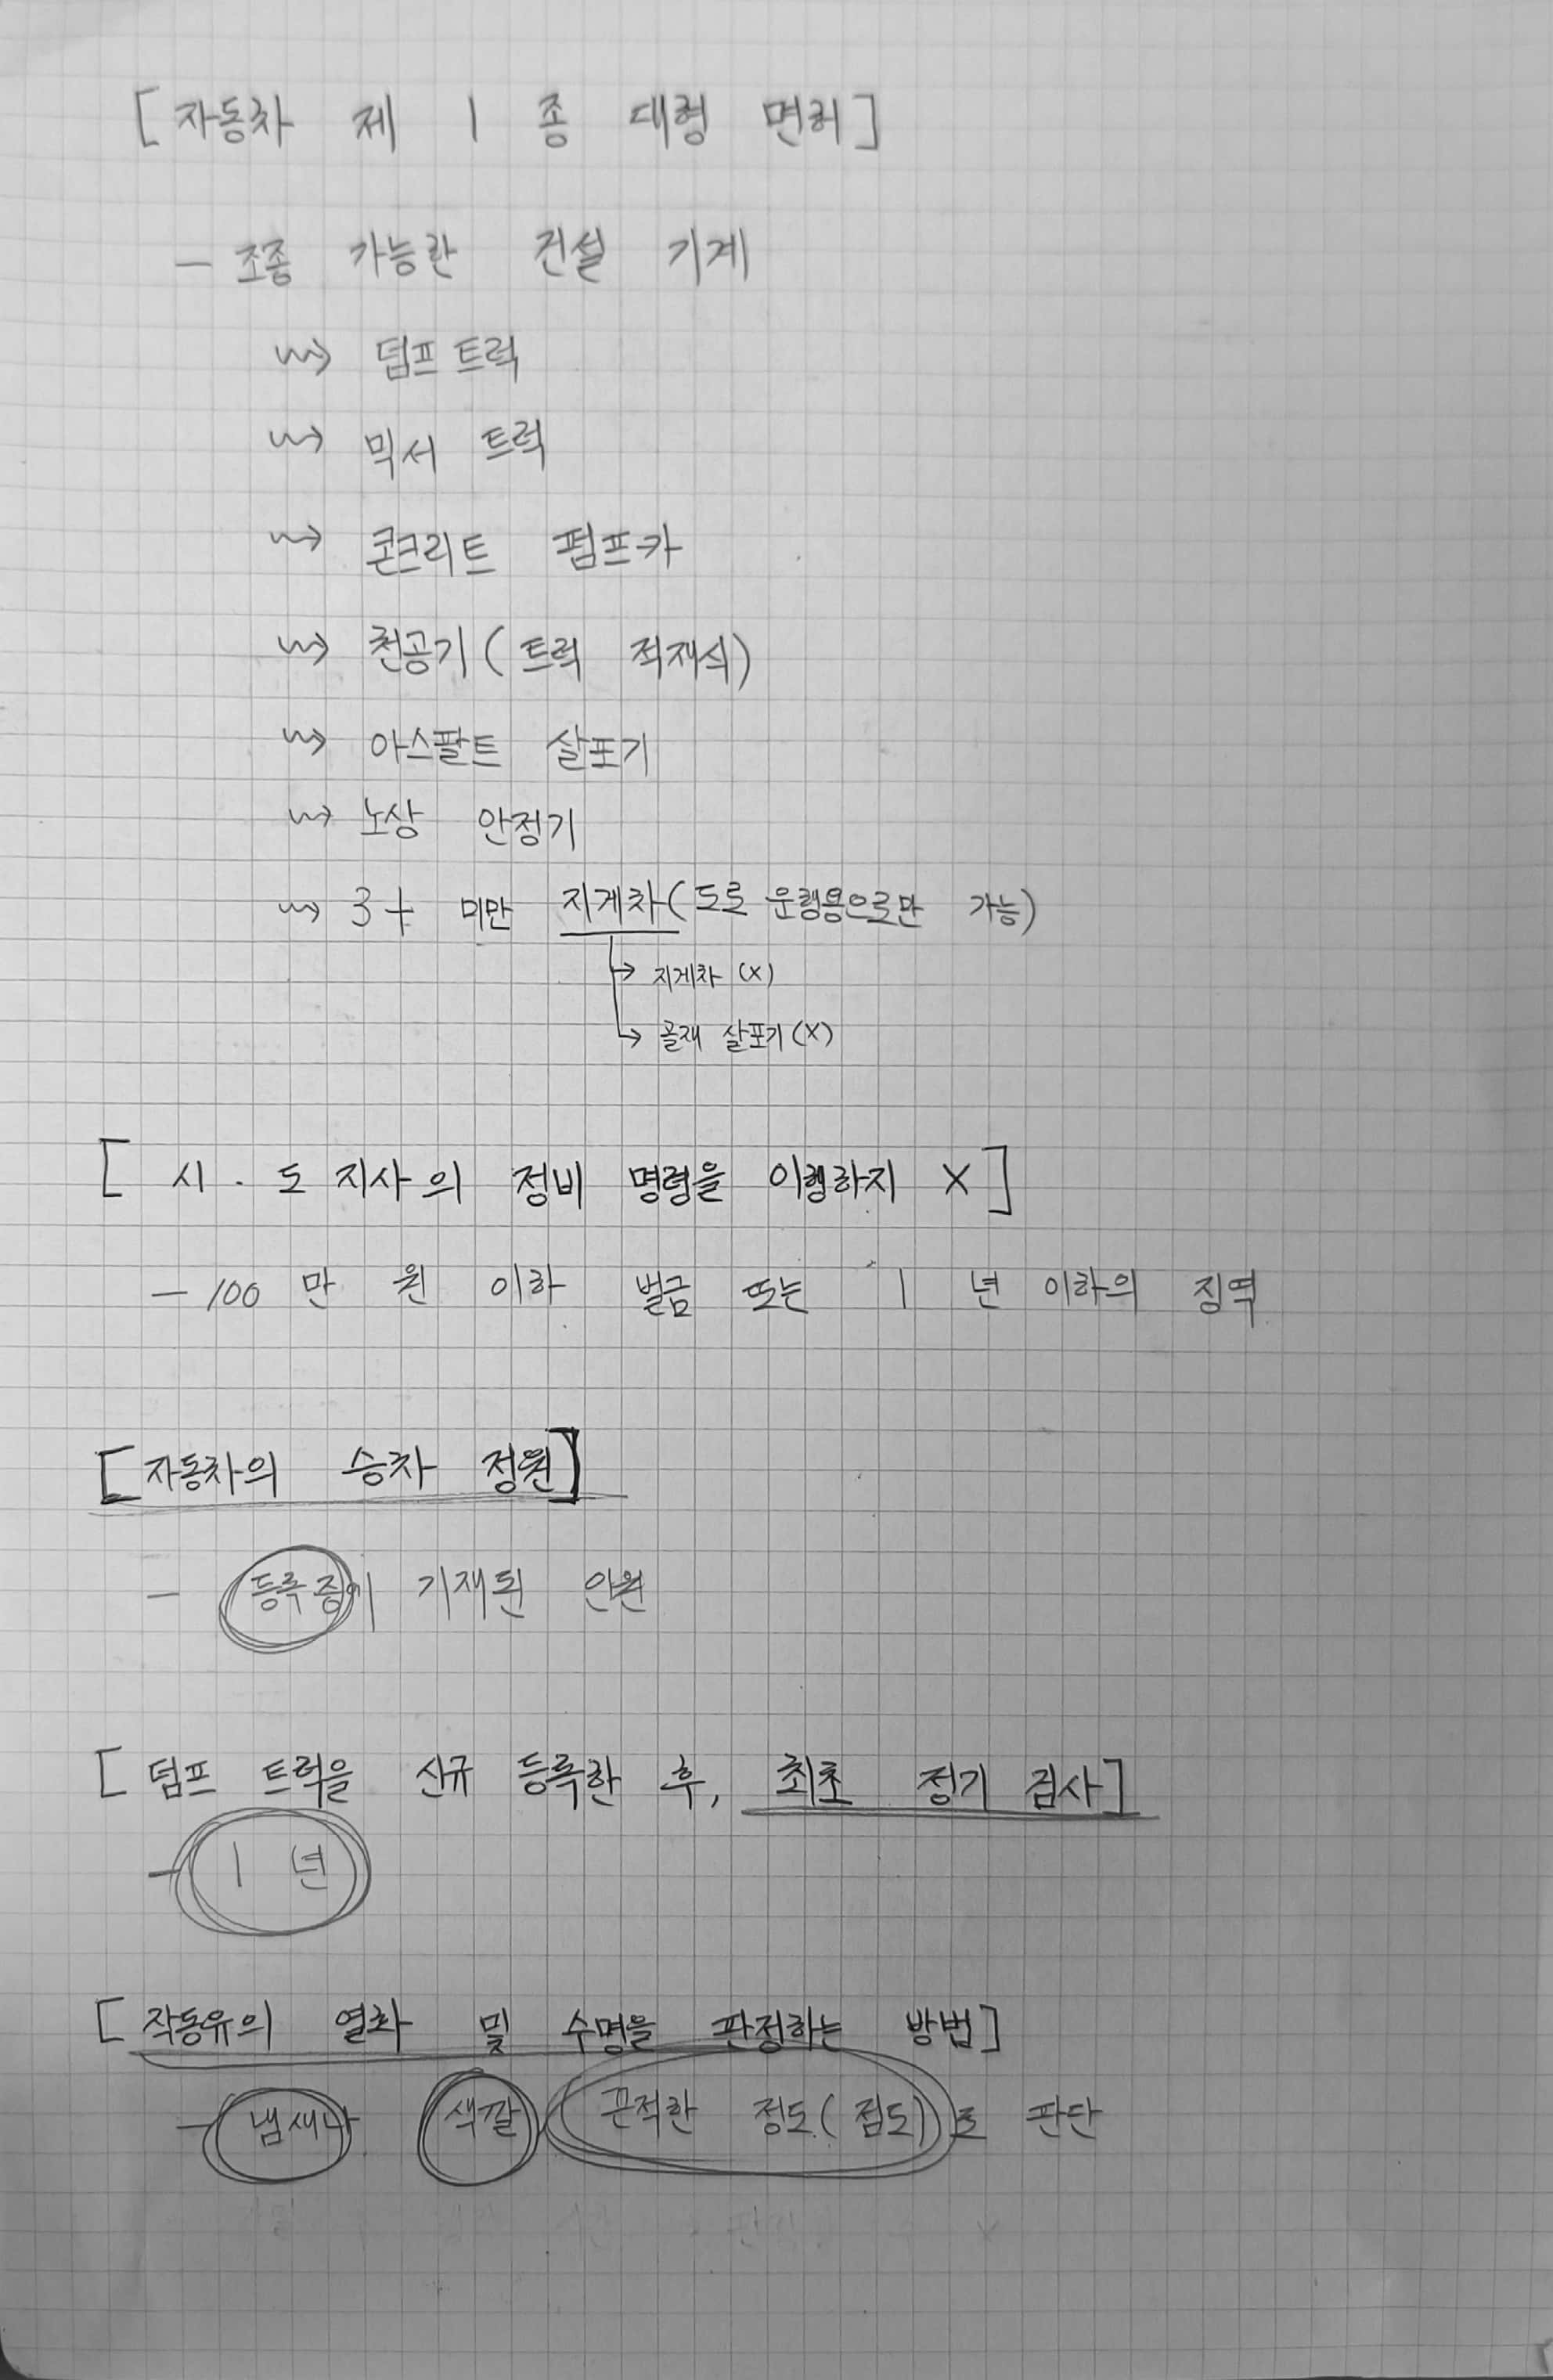 [자동차 제 1 종 대형 면허]
- 조종 가능한 건설 기계
⇝ 덤프 트럭
⇝ 믹서 트럭
⇝ 콘크리트 펌프카
⇝ 천공기 (트럭 적재식)
⇝ 아스팔트 살포기
⇝ 노상 안정기
⇝ 3t 미만 지게차 (도로 운행용으로만 가능)
→ 지게차 (X)
→ 골재 살포기 (X)
[시·도지사의 정비 명령을 이행하지 X]
- 100 만 원 이하 벌금 또는 1 년 이하의 징역
[자동차의 승차 정원]
- 등록증에 기재된 인원
[덤프 트럭을 신규 등록한 후, 최초 정기 검사]
- 1 년
[작동유의 열화 및 수명을 판정하는 방법]
- 냄새나 색깔, 끈적한 정도(점도)로 판단